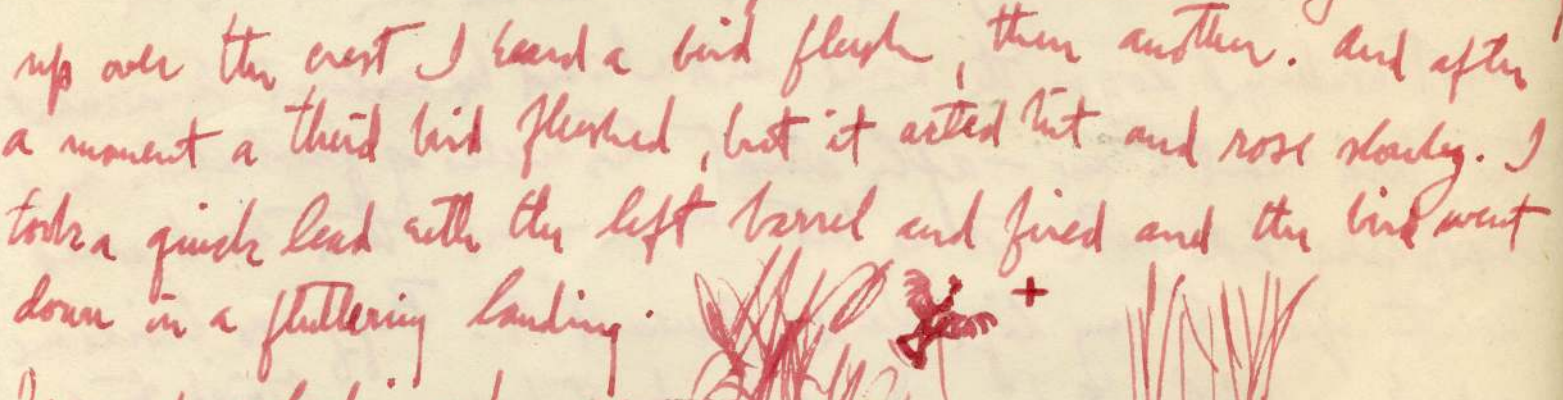 up over the crest I heard a bird flush, then another. And after
a moment a third bird flushed, but it acted hit and rose slowly. I
took a quick lead with the left barrel and fired and the bird went
down in a fluttering landing.